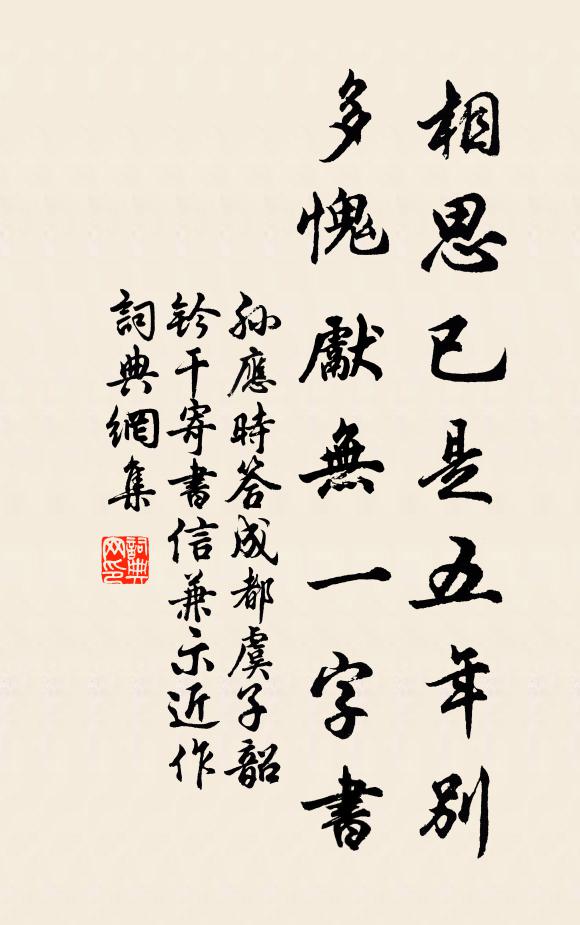 相思已是五年別
多愧獻無一字書
孫應時答成都虞子韶
鈐干寄書信兼示近作
詞典網集
詞典网印